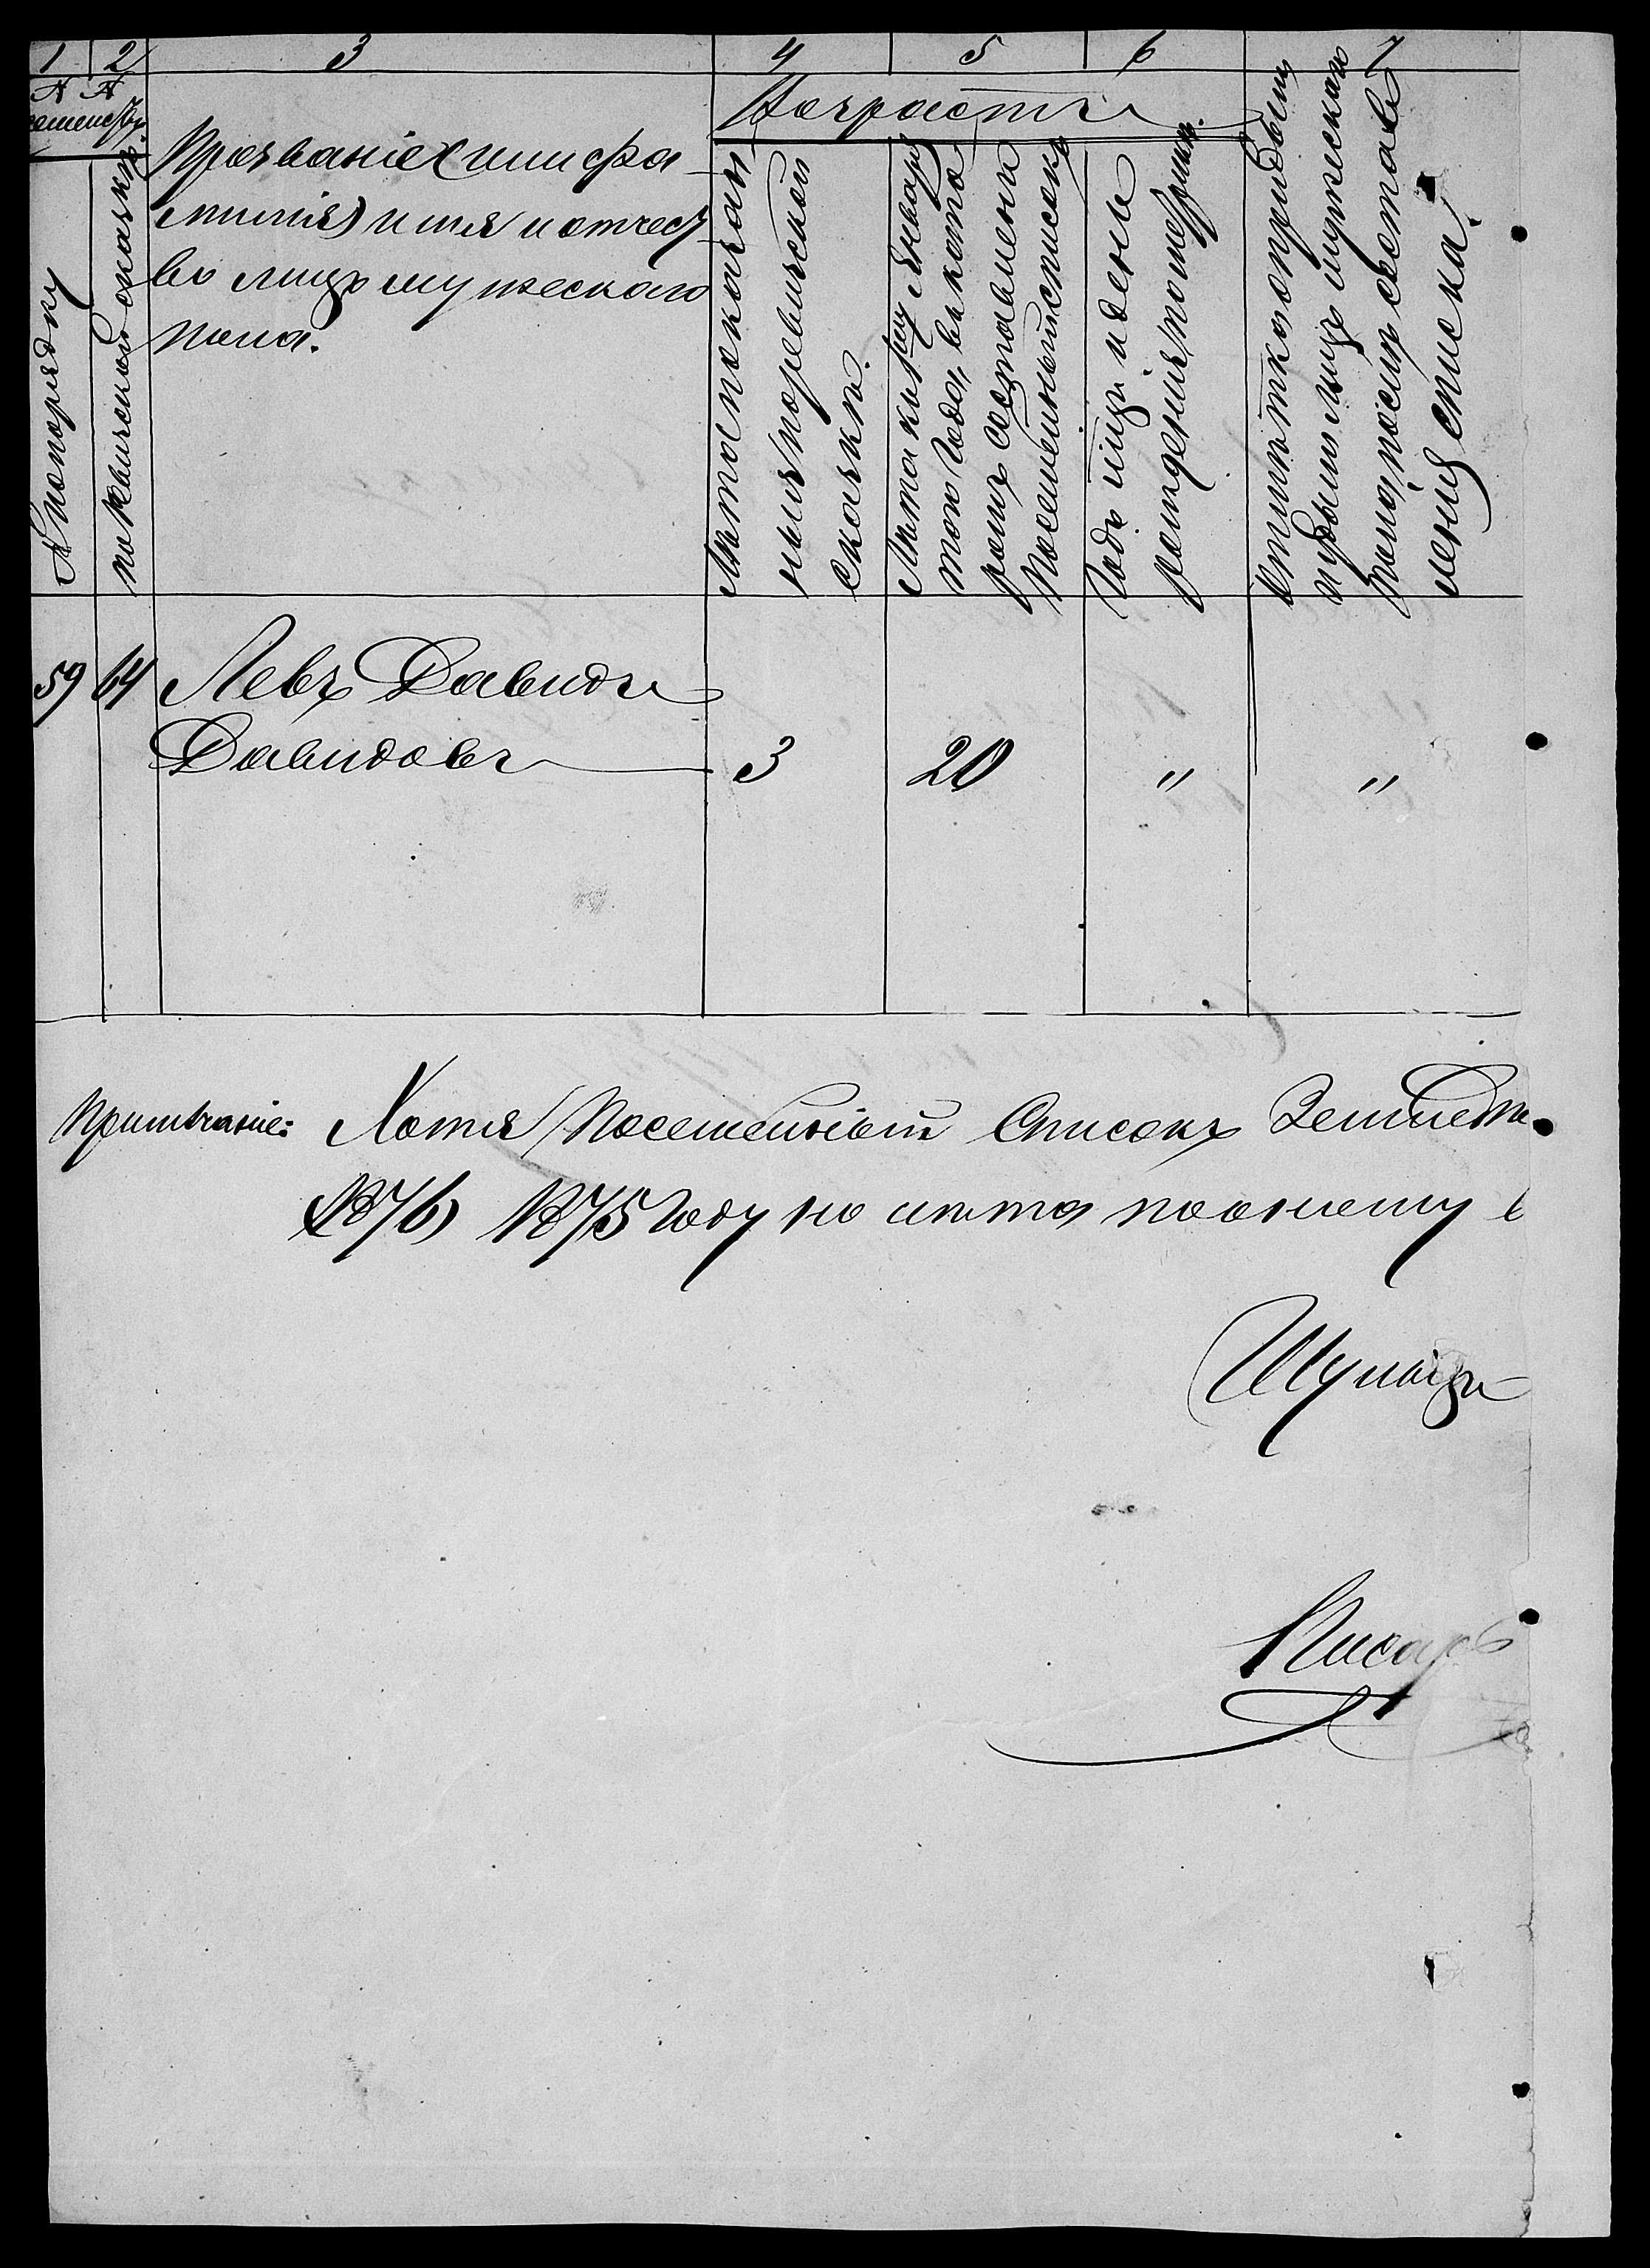 1 2 3 4 5 6 7
№ №
семействъ.
По порядку
по ревизской сказкѣ.
Прозваніе (или фа
милія) имя и отчест
во лицъ мужескаго
пола.
Возрастъ
Лѣта показан
ныя по ревизской
сказкѣ.
Лѣта къ 1му Января
того года, въ кото
ромъ составленъ
посемейный списокъ
Годъ мѣсяцъ и день
рожденія по метрикѣ.
Отмѣтка о прибыли
и убыли лицъ мужескаго
пола, послѣ состав
ленія списка.
59 64 Левъ Давидъ
Давидовъ 3 20 " "
Примѣчаніе: Хотя Посемейный Списокъ
1876 1875 году но лѣта по оному
Писарь